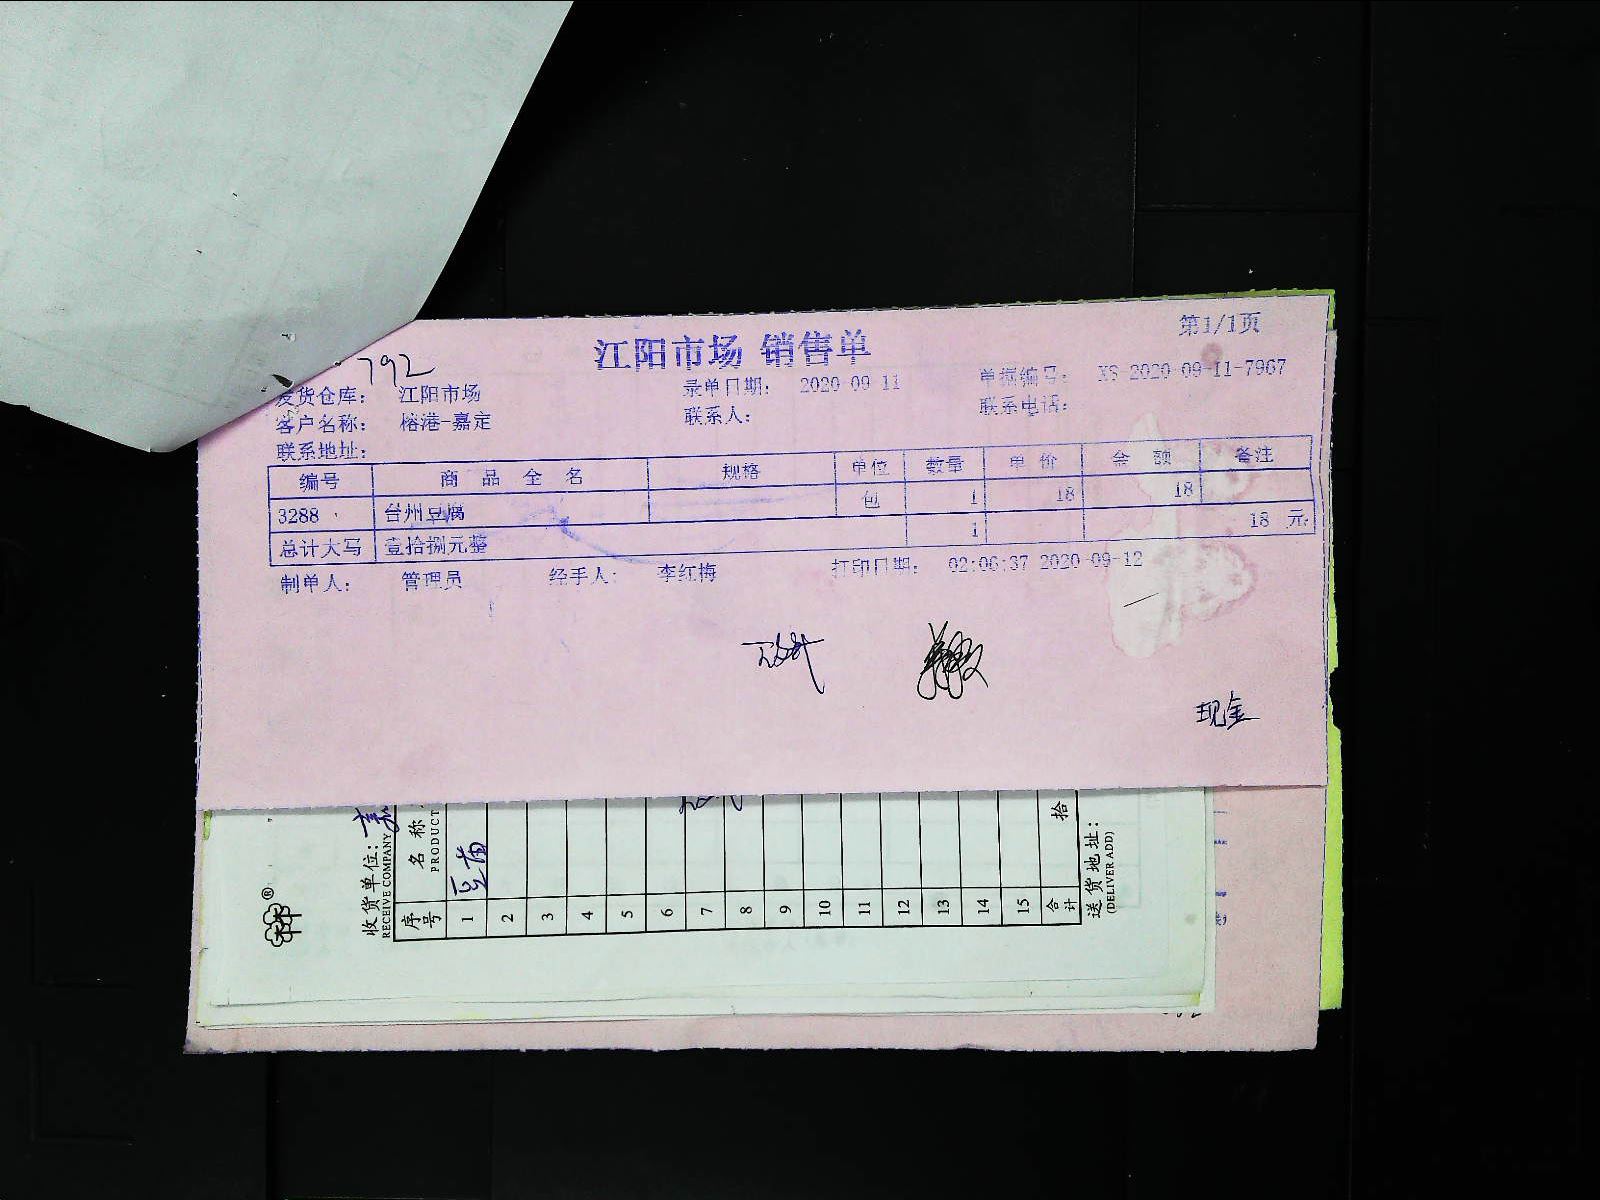 第1/1页
江阳市场 销售单
792
发货仓库： 江阳市场 录单日期： 2020-09-11 单据编号： XS-2020-09-11-7967
客户名称： 榕港-嘉定 联系人： 联系电话：
联系地址：
编号 商品全名 规格 单位 数量 单价 金额 备注
3288 台州豆腐 包 1 18 18
总计大写 壹拾捌元整 1 18 元
制单人： 管理员 经手人： 李红梅 打印日期： 02:06:37 2020-09-12
现金
收货单位：
RECEIVE COMPANY
序号 名称
PRODUCT
1 豆腐
2
3
4
5
6
7
8
9
10
11
12
13
14
15
合计 拾
送货地址：
(DELIVER ADD)